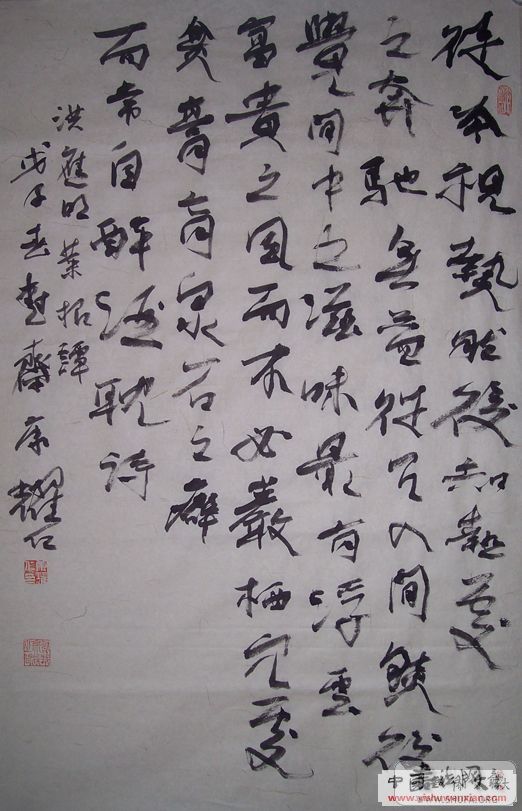 從冷視熱然後知熱處
之奔馳無益從冗入間然後
覺間中之滋味最有浮雲
富貴之風而不必嚴栖穴處
無膏肓泉石之癖
而常自醉酒耽詩
洪應明菜根譚
戊子春書齋耀仁